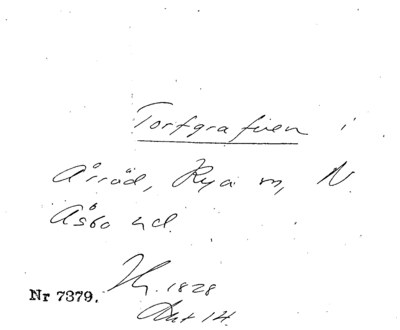 Torfgrafven i
Årröd, Rya m, N.
Åsbo hd.
Hr. 1828
Akt 14.
Nr 7379.